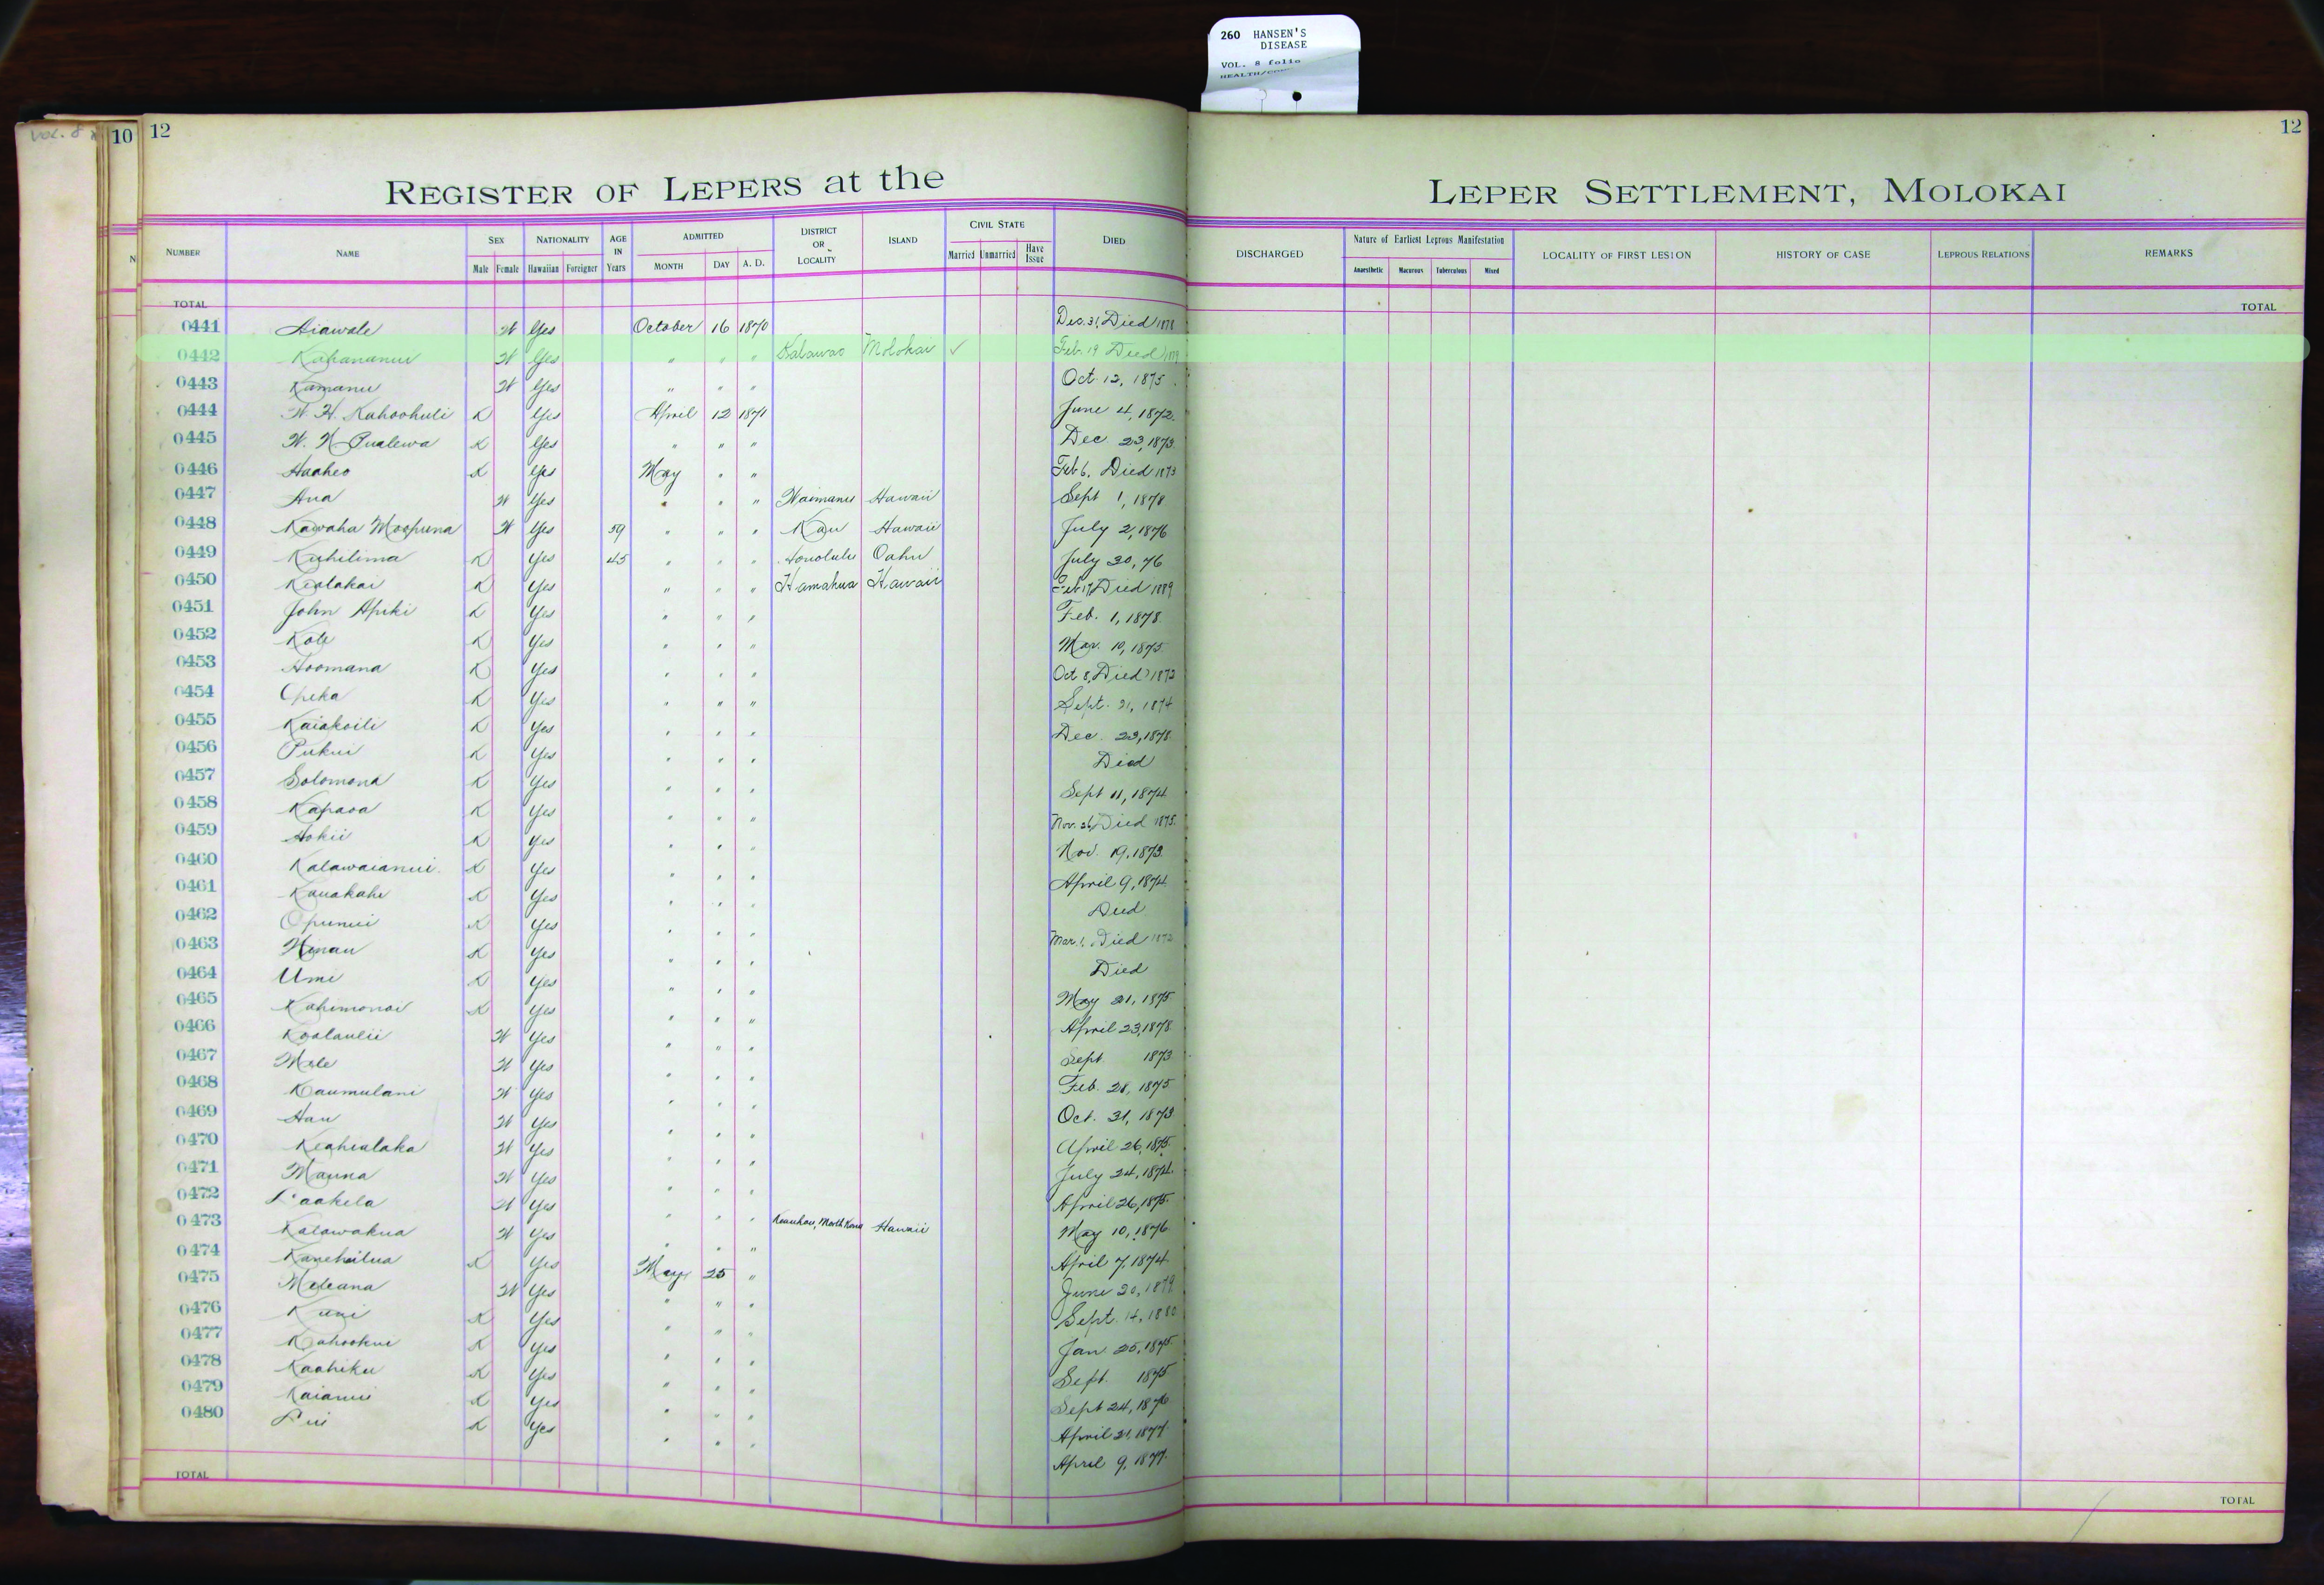 260 HANSEN'S
DISEASE
VOL. 8 folio
VOL. 8
10 12
12
REGISTER OF LEPERS at the LEPER SETTLEMENT, MOLOKAI
NUMBER NAME SEX Male Female NATIONALITY Hawaiian Foreigner AGE IN Years ADMITTED MONTH DAY A. D. DISTRICT OR LOCALITY ISLAND CIVIL STATE Married Unmarried Have Issue DIED DISCHARGED Nature of Earliest Leprous Manifestation Anaesthetic Macurous Tuberculous Mixed LOCALITY OF FIRST LESION HISTORY OF CASE LEPROUS RELATIONS REMARKS
TOTAL TOTAL
0441 Aiawale W Yes October 16 1870 Dec. 31, Died 1878
0442 Kahananui W Yes " " " Kalawao Molokai ✓ Feb. 19 Died
0443 Kamanu W Yes " " " Oct. 12, 1875
0444 W. H. Kahoohuli K Yes April 12 1871 June 4, 1872
0445 W. N. Pualewa K Yes " " " Dec 23, 1873
0446 Haaheo K Yes May " " Feb 6, Died 1873
0447 Ana W Yes " " " Waimanu Hawaii Sept 1, 1878
0448 Kawaha Moopuna W Yes 59 " " " Kau Hawaii July 2, 1876
0449 Kuhilima K Yes 45 " " " Honolulu Oahu July 30, 76
0450 Kealakai K Yes " " " Hamakua Hawaii Feb 17, Died 1889
0451 John Apiki K Yes " " " Feb. 1, 1878
0452 Kole K Yes " " " Mar. 10, 1875
0453 Hoomana K Yes " " " Oct 8, Died 1873
0454 Opeka K Yes " " " Sept. 21, 1874
0455 Kaiakoili K Yes " " " Dec. 23, 1878
0456 Pukui K Yes " " " Died
0457 Solomona K Yes " " " Sept 11, 1874
0458 Kapaoa K Yes " " " Nov. 26, Died 1875
0459 Hokii K Yes " " " Nov. 19, 1873
0460 Kalawaianui K Yes " " " April 9, 1874
0461 Kauakahi K Yes " " " Died
0462 Opunui K Yes " " " Mar. 1, Died 1873
0463 Hinau K Yes " " " Died
0464 Umi K Yes " " " May 21, 1875
0465 Kahimonai K Yes " " " April 23, 1878
0466 Koolaulii W Yes " " " Sept 1873
0467 Mele W Yes " " " Feb. 28, 1875
0468 Kaumulani W Yes " " " Oct. 31, 1873
0469 Hau W Yes " " " April 26, 1875
0470 Keahialaka W Yes " " " July 24, 1874
0471 Mauna W Yes " " " April 26, 1875
0472 Laakela W Yes " " " May 10, 1876
0473 Kalawakua W Yes " " " Keauhou, North Kona Hawaii April 7, 1874
0474 Kanehailua K Yes May 25 " June 20, 1879
0475 Meleana W Yes " " " Sept. 14, 1880
0476 Kuni K Yes " " " Jan 25, 1875
0477 Kahookui K Yes " " " Sept. 1875
0478 Kaahiku K Yes " " " Sept 24, 1876
0479 Kaianui K Yes " " " April 21, 1877
0480 Lui K Yes " " " April 9, 1877
TOTAL TOTAL